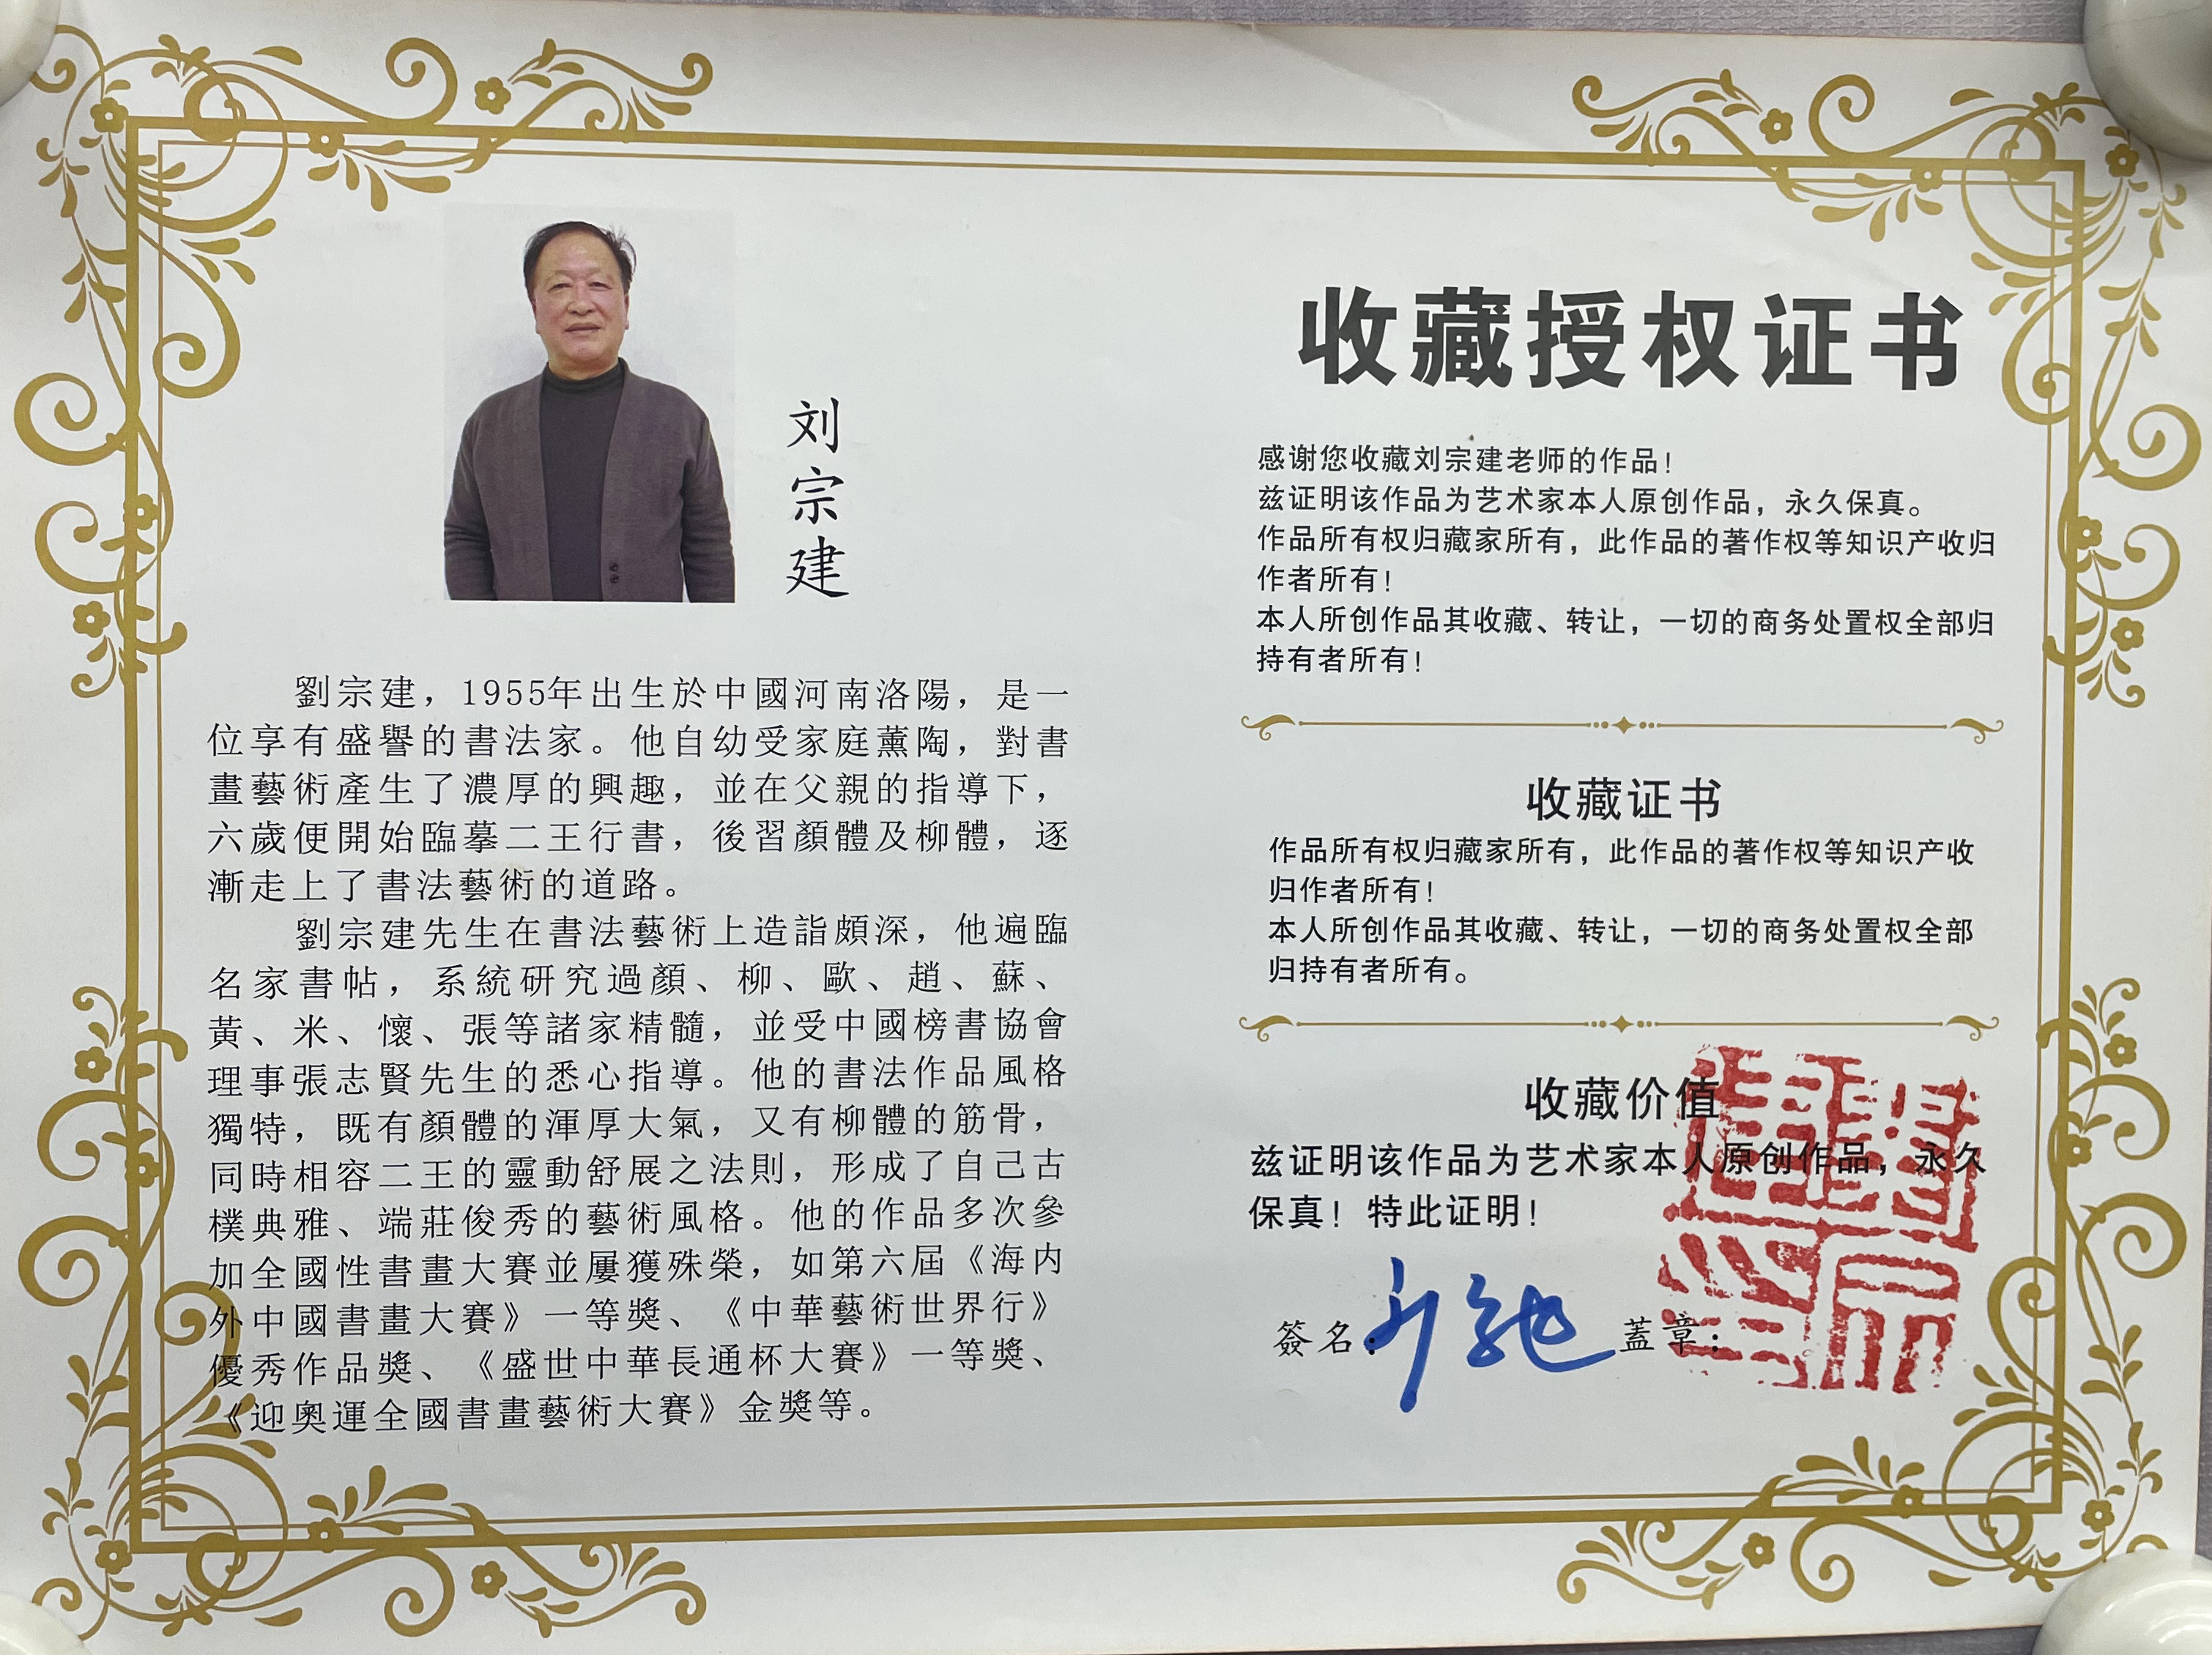 刘宗建
劉宗建，1955年出生於中國河南洛陽，是一
位享有盛譽的書法家。他自幼受家庭薰陶，對書
畫藝術產生了濃厚的興趣，並在父親的指導下，
六歲便開始臨摹二王行書，後習顏體及柳體，逐
漸走上了書法藝術的道路。
劉宗建先生在書法藝術上造詣頗深，他遍臨
名家書帖，系統研究過顏、柳、歐、趙、蘇、
黃、米、懷、張等諸家精髓，並受中國榜書協會
理事張志賢先生的悉心指導。他的書法作品風格
獨特，既有顏體的渾厚大氣，又有柳體的筋骨，
同時相容二王的靈動舒展之法則，形成了自己古
樸典雅、端莊俊秀的藝術風格。他的作品多次參
加全國性書畫大賽並屢獲殊榮，如第六屆《海内
外中國書畫大賽》一等獎、《中華藝術世界行》
優秀作品獎、《盛世中華長通杯大賽》一等獎、
《迎奧運全國書畫藝術大賽》金獎等。
收藏授权证书
感谢您收藏刘宗建老师的作品！
兹证明该作品为艺术家本人原创作品，永久保真。
作品所有权归藏家所有，此作品的著作权等知识产收归
作者所有！
本人所创作品其收藏、转让，一切的商务处置权全部归
持有者所有！
收藏证书
作品所有权归藏家所有，此作品的著作权等知识产收
归作者所有！
本人所创作品其收藏、转让，一切的商务处置权全部
归持有者所有。
收藏价值
兹证明该作品为艺术家本人原创作品，永久
保真！特此证明！
簽名： 蓋章：